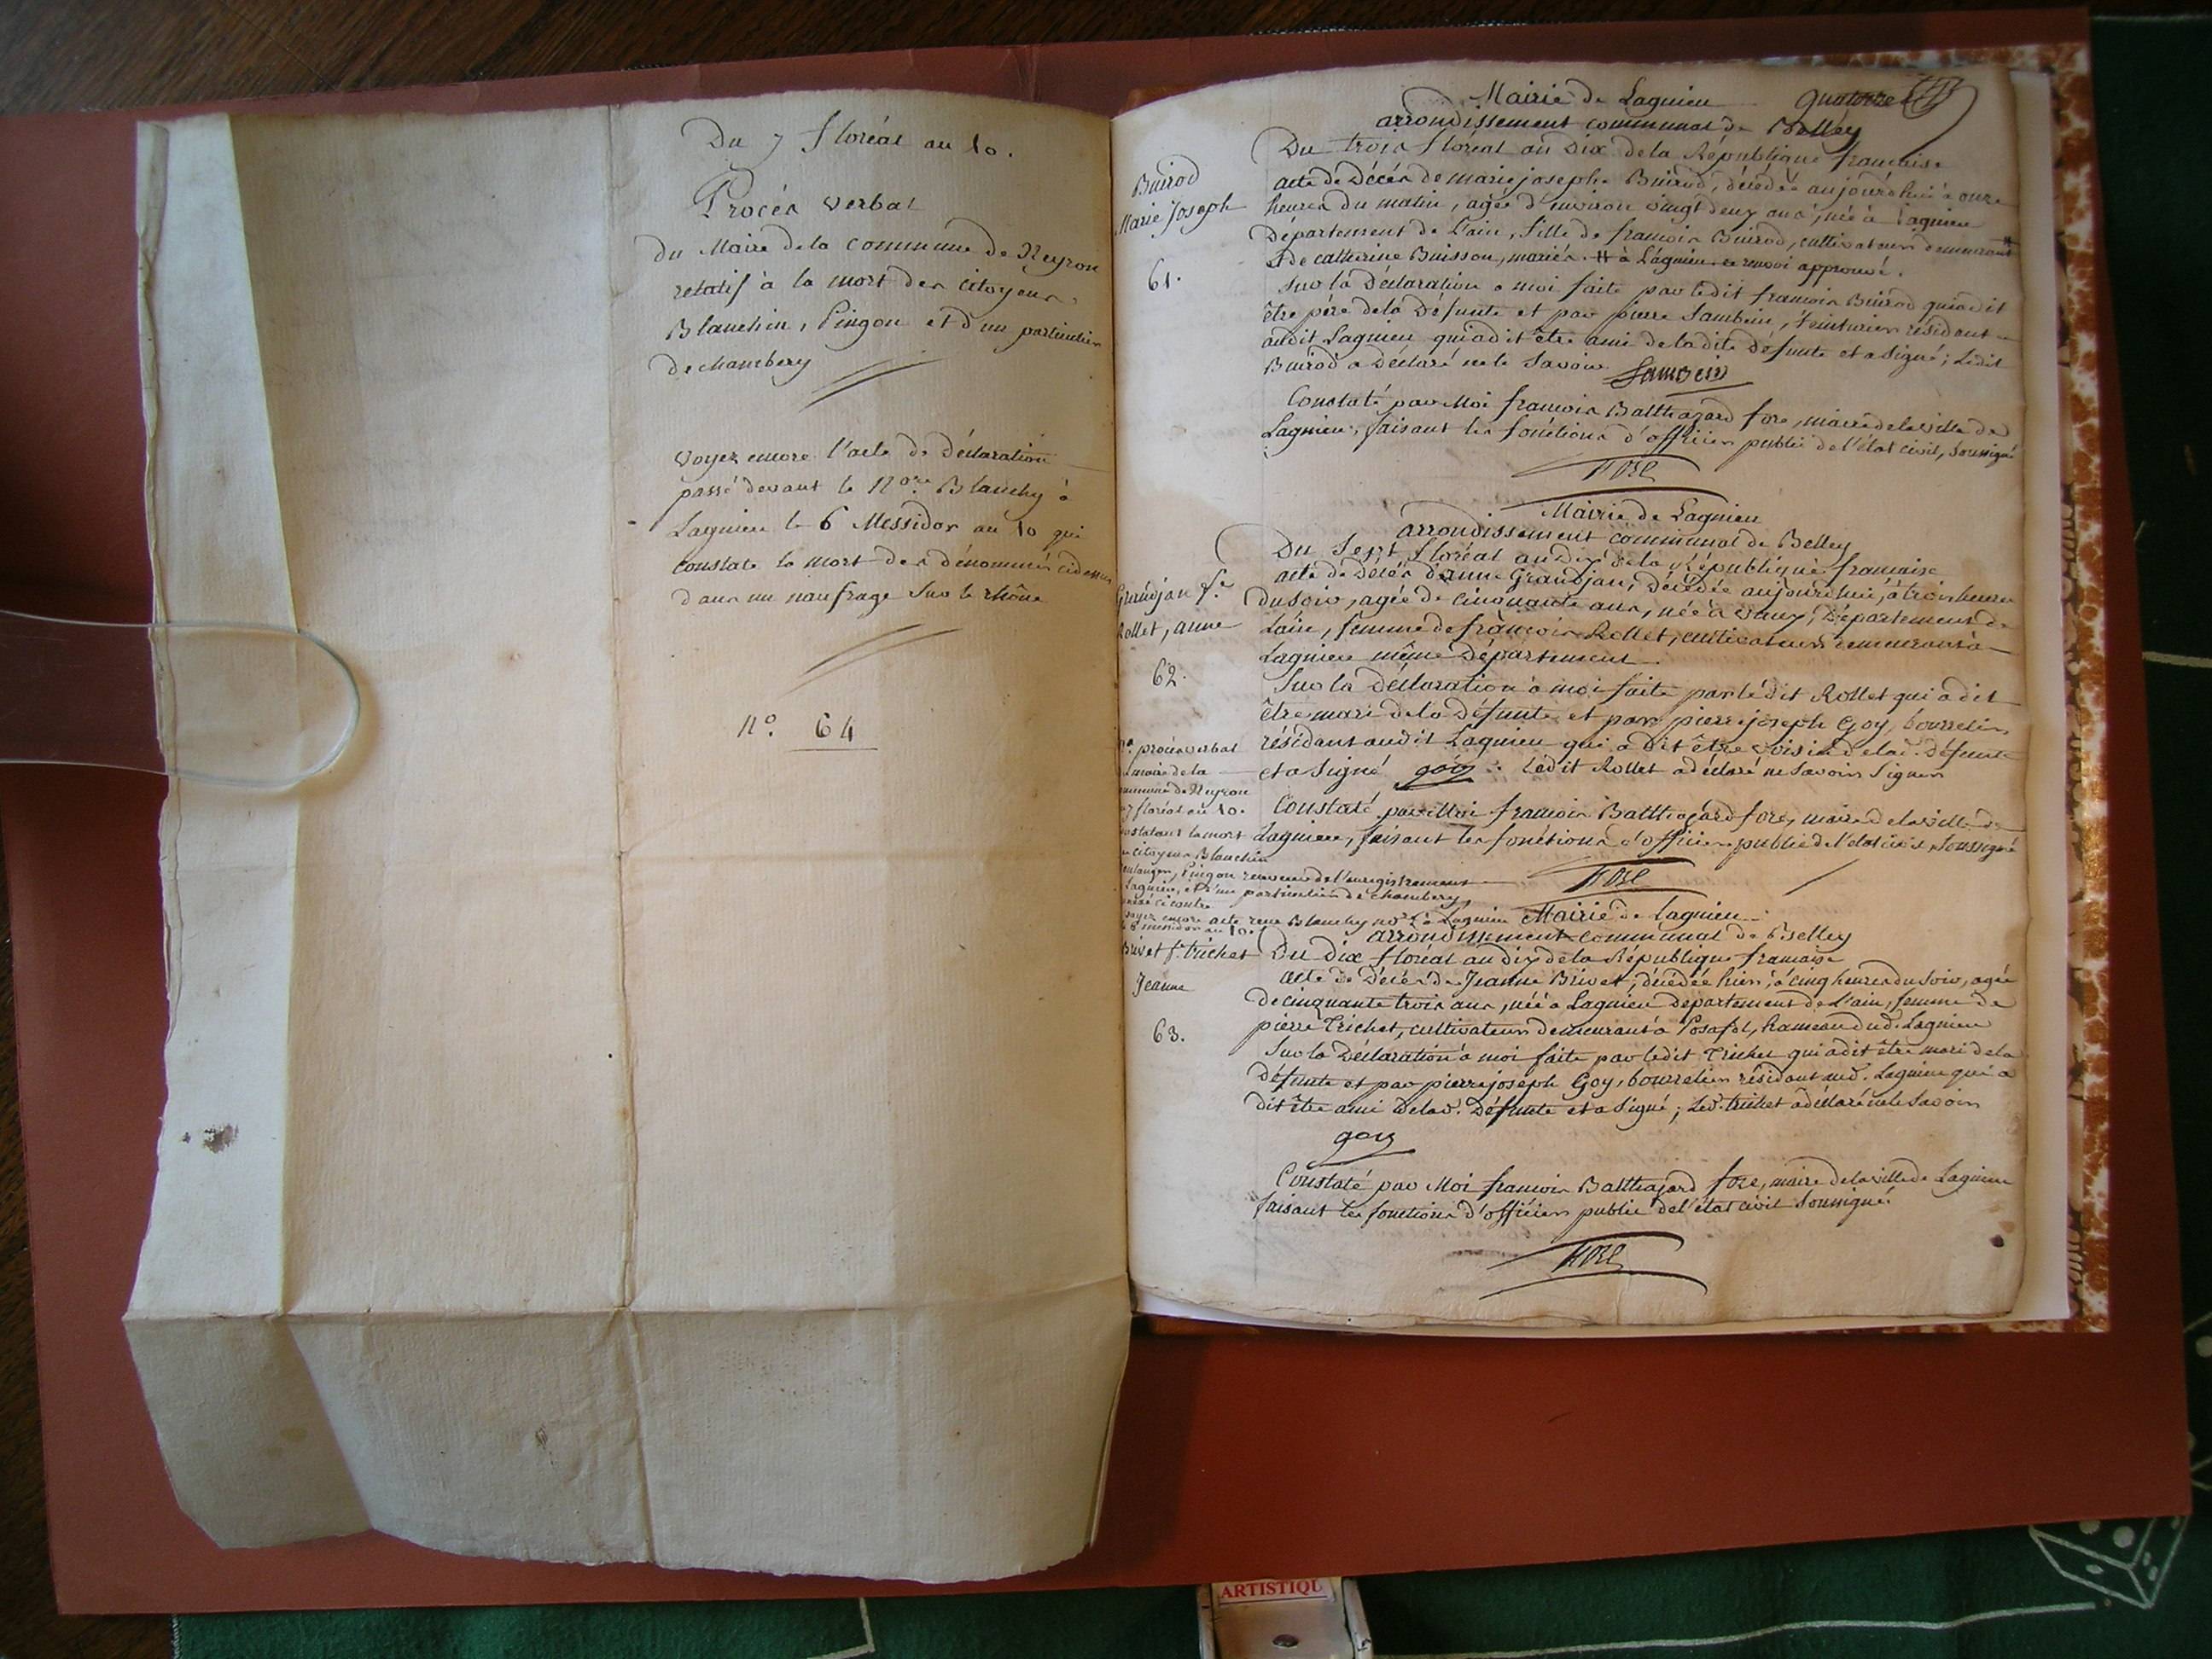 Du 7 floréal an 10.
Procès verbal
du Maire de la commune de Neyron
relatif à la mort des citoyens
Blanchin, Pingon et d'un particulier
de chambery
voyez encore l'acte de déclaration
passé devant le Nore Blanchy à
Lagnieu le 6 Messidor an 10 qui
constate la mort des dénommés cidessus
dans un naufrage sur le rhône
n°. 64
Mairie de Lagnieu quatorze
arrondissement communal de Belley
Du trois floréal an dix de la République francaise
Buirod
Marie Joseph
61.
acte de décès de marie josephe Buirod, décédée aujourd'hui à onze
heures du matin, agée d'environ vingt deux ans, née à Lagnieu
Département de l'ain, fille de francois Buirod, cultivateur demeurant #
et de catherine Buisson, mariés. # à Lagnieu ce renvoi approuvé.
Sur la Déclaration a moi faite par ledit francois Buirod qui a dit
être père de la Défunte et par pierre Sambein, teinturier résidant
audit Lagnieu qui a dit être ami de ladite défunte et a signé; Ledit
Buirod a déclaré ne le savoir Sambein
Constaté par Moi francois Balthazard fore, maire de la ville de
Lagnieu, faisant les fonctions d'officier public de l'état civil, soussigné
fore
Mairie de Lagnieu
arrondissement communal de Belley
Du sept floréal an dix de la République francaise
Grandjan fe.
Rollet, anne
62.
acte de décès d'anne Grandjan, décédée aujourdhui, à trois heures
du soir, agée de cinquante ans, née à vaux, Département de
Lain, femme de françois Rollet, cultivateur demeurant à
Lagnieu même Département.
Sur la déclaration à moi faite par lédit Rollet qui a dit
être mari de la défunte et par pierre joseph Goy, bourrelier
résidant audit Lagnieu qui a dit être voisin de lad. défunte
et a signé goy . Ledit Rollet a déclaré ne savoir signer
Constaté par Moi francois Balthazard fore, maire de la ville de
Lagnieu, faisant les fonctions d'officier public de l'état civil soussigné
fore
procès verbal
maire de la
commune de Neyron
7 floréal an 10.
constatant la mort
citoyens Blanchin
boulanger, Pingon receveur de l'enregistrement
Lagnieu, et d'un particulier de chambery,
voyez encore acte recu Blanchy nore à Lagnieu
6 messidor an 10.
Mairie de Lagnieu
arrondissement communal de Belley
Brivet f. trichet
Jeanne
63.
Du dix floréal an dix de la République francaise
acte de décès de Jeanne Brivet, décédée hier, à cinq heures du soir, agée
de cinquante trois ans, née à Lagnieu département de L'ain, femme de
pierre Trichet, cultivateur demeurant à Posafol, hameau dud. Lagnieu
Sur la Déclaration à moi faite par ledit Trichet qui a dit être mari de la
Défunte et par pierre joseph Goy, bourrelier résidant aud. Lagnieu qui a
dit être ami de lad. Défunte et a signé; Led. trichet a déclaré ne le savoir
goy
Constaté par Moi francois Balthazard fore, maire de la ville de Lagnieu
faisant les fonctions d'officier public de l'état civil soussigné
fore
ARTISTIQU